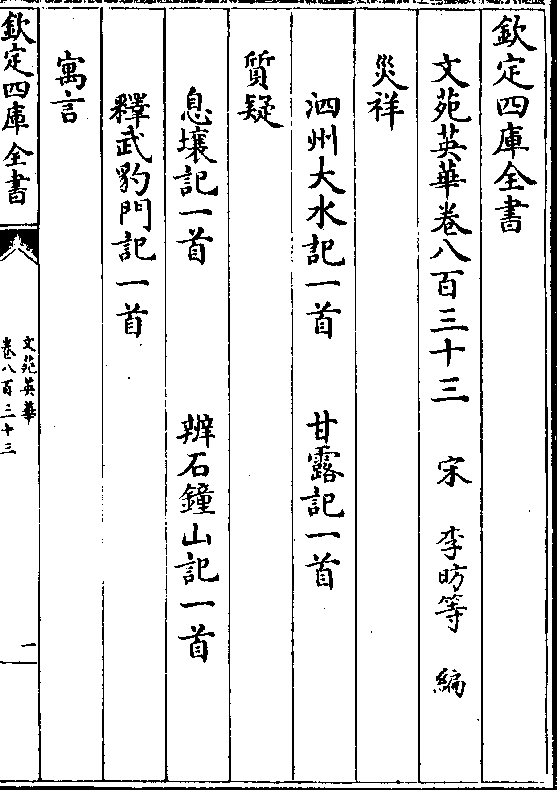 欽定四庫全書
文苑英華卷八百三十三 宋 李昉等 編
災祥
泗州大水記一首 甘露記一首
質疑
息壤記一首 辨石鐘山記一首
釋武豹門記一首
寓言
欽定四庫全書
文苑英華
卷八百三十三
一